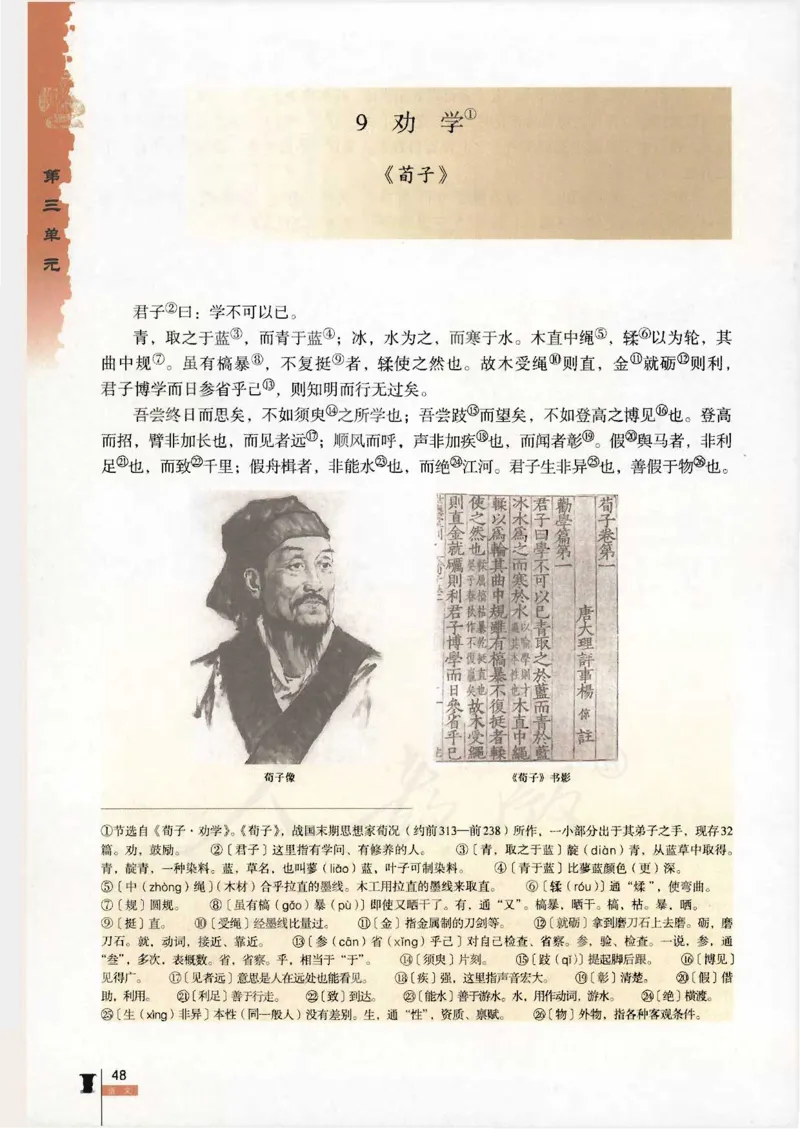 第三单元
9 劝 学①
《荀子》
君子②曰：学不可以已。
青，取之于蓝③，而青于蓝④；冰，水为之，而寒于水。木直中绳⑤，𫐓⑥以为轮，其
曲中规⑦。虽有槁暴⑧，不复挺⑨者，𫐓使之然也。故木受绳⑩则直，金⑪就砺⑫则利，
君子博学而日参省乎己⑬，则知明而行无过矣。
吾尝终日而思矣，不如须臾⑭之所学也；吾尝跂⑮而望矣，不如登高之博见⑯也。登高
而招，臂非加长也，而见者远⑰；顺风而呼，声非加疾⑱也，而闻者彰⑲。假⑳舆马者，非利
足㉑也，而致㉒千里；假舟楫者，非能水㉓也，而绝㉔江河。君子生非异㉕也，善假于物㉖也。
荀子卷第一
唐大理評事楊 倞 註
勸學篇第一
君子曰學不可以已青取之於藍而青於藍
冰水爲之而寒於水以喻學則才過其本性也木直中繩
輮以爲輪其曲中規雖有槁暴不復挺者輮
使之然也故木受繩
則直金就礪則利君子博學而日參省乎己
荀子像
《荀子》书影
①节选自《荀子·劝学》。《荀子》，战国末期思想家荀况（约前313—前238）所作，一小部分出于其弟子之手，现存32
篇。劝，鼓励。 ②〔君子〕这里指有学问、有修养的人。 ③〔青，取之于蓝〕靛（diàn）青，从蓝草中取得。
青，靛青，一种染料。蓝，草名，也叫蓼（liǎo）蓝，叶子可制染料。 ④〔青于蓝〕比蓼蓝颜色（更）深。
⑤〔中（zhòng）绳〕（木材）合乎拉直的墨线。木工用拉直的墨线来取直。 ⑥〔𫐓（róu）〕通“煣”，使弯曲。
⑦〔规〕圆规。 ⑧〔虽有槁（gǎo）暴（pù）〕即使又晒干了。有，通“又”。槁暴，晒干。槁，枯。暴，晒。
⑨〔挺〕直。 ⑩〔受绳〕经墨线比量过。 ⑪〔金〕指金属制的刀剑等。 ⑫〔就砺〕拿到磨刀石上去磨。砺，磨
刀石。就，动词，接近、靠近。 ⑬〔参（cān）省（xǐng）乎己〕对自己检查、省察。参，验、检查。一说，参，通
“叁”，多次，表概数。省，省察。乎，相当于“于”。 ⑭〔须臾〕片刻。 ⑮〔跂（qǐ）〕提起脚后跟。 ⑯〔博见〕
见得广。 ⑰〔见者远〕意思是人在远处也能看见。 ⑱〔疾〕强，这里指声音宏大。 ⑲〔彰〕清楚。 ⑳〔假〕借
助，利用。 ㉑〔利足〕善于行走。 ㉒〔致〕到达。 ㉓〔能水〕善于游水。水，用作动词，游水。 ㉔〔绝〕横渡。
㉕〔生（xìng）非异〕本性（同一般人）没有差别。生，通“性”，资质、禀赋。 ㉖〔物〕外物，指各种客观条件。
48
语文